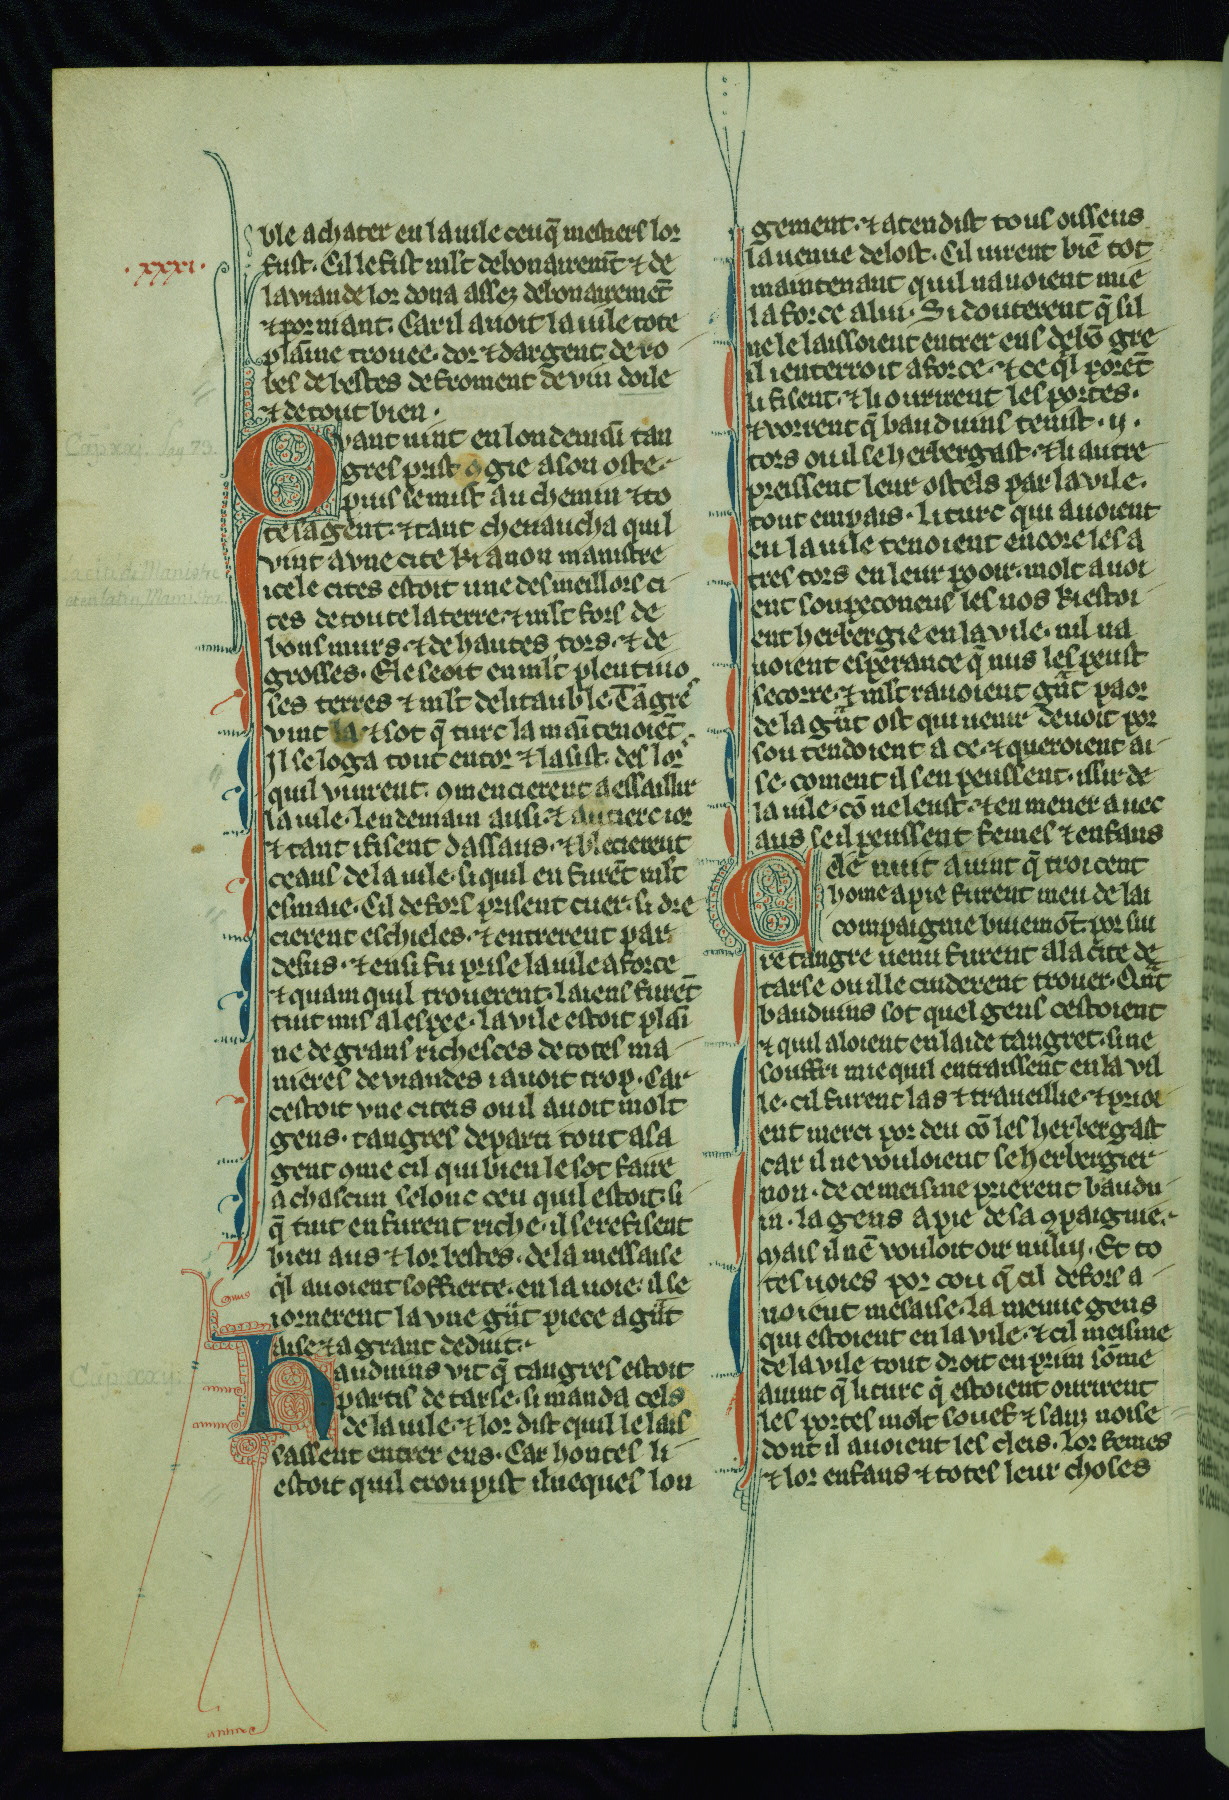 .xxxi.
vle achater en la uile ceuq̄ mestiers lor
fust. Cil le fist ml't debonairem̄t ⁊ de
la viande lor dona assez debonairemēt
⁊ por niant. Car il auoit la uile tote
plaīne trouee. dor ⁊ dargent. de ro
bes de bestes de froment de vin doile
⁊ de tout bien.
Qvant uint en londemain tan
gres prist ꝯgie a son oste.
puis se mist au chemin ⁊ to
te sa gent. ⁊ tant cheuaucha quil
vint a vne cite ki a non mamistre
icele cites estoit une des meillors ci
tes de toute la terre. ⁊ ml't fors de
bons murs. ⁊ de hautes tors. ⁊ de
grosses. Ele seoit en ml't plentiuo
ses terres ⁊ ml't delitauble. Tāgre
vint la ⁊ sot q̄ turc la mai͂tenoiēt.
Il se loga tout entor ⁊ lasist. des lor
quil vinrent. ꝯmencierent a essaillir
la uile. lendemain ausi. ⁊ au tierc ior
⁊ tant i fisent dassaus. ⁊ blecierent
ceaus de la uile. si quil en furēt ml't
esmaie. Cil defors prisent cuer. si dre
cierent eschieles. ⁊ entrerent par
desus. ⁊ ensi fu prise la uile a force
⁊ quam quil trouerent laiens furēt
tuit mis a lespee. la vile estoit plāi
ne de grans richesces de totes ma
nieres de viandes i auoit trop. Car
cestoit vne citeis ou il auoit molt
gens. tangres departi tout a sa
gent ꝯme cil qui bien le sot faire
a chascun selonc ceu quil estoit. si
q̄ tuit en furent riche. il se refisent
bien aus ⁊ lor bestes. de la messaise
q̄l auoient soffierte. en la uoie. il se
iornerent la vne gn̄t piece a gn̄t
aise ⁊ a grant deduit.
Bauduins vit q̄ tangres estoit
partis de tarse. si manda cels
de la uile. ⁊ lor dist quil le lais
sassent entrer ens. Car hontes li
estoit quil croupist iluequeſ lon
gement. ⁊ atendist tous oisseus
la uenue de lost. Cil uirent biē tot
maintenant quil nauoient mie
la force a lui. Si douterent q̄ sil
ne le laissoient entrer ens de bō gre
il i enterroit a force. ⁊ ce q̄l porēt
li fisent. ⁊ li ourirent les portes.
⁊ vorrent q̄ bauduins tenist .ij.
tors ou il se herbergast. ⁊ li autre
preissent leur ostels par la vile.
tout en pais. li turc qui auoient
en la uile tenoient encore les a
tres tors en leur pooir. molt auoi
ent soupeconeus les nos ki estoi
ent herbergie en la vile. nil na
uoient esperance q̄ nus les peust
secorre. ⁊ ml't rauoient gn̄t paor
de la gn̄t ost qui uenir deuoit por
sou tendoient a ce. ⁊ queroient ai
se. coment il sen peussent. issir de
la uile. cō ne leust. ⁊ en mener auec
aus se il peussent femes ⁊ enfans
Cele nuit auint q̄ troi cent
home a pie furent meu de lai
compaignie buiemōt. por siu
re tangre uenu furent a la cite de
tarse ou il le cuiderent trouer. Qn̄t
bauduins sot quel gens cestoient
⁊ quil aloient en laide tangret. si ne
souffri mie quil entraissēt en la vil
le. cil furent las ⁊ traueillie. ⁊ prioi
ent merci por deu cō les herbergast
car il ne vouloient se herbergier
non. de ce meisme prierent baudu
in. la gens a pie de sa ꝯpaignie.
Mais il nē vouloit oir nului. Et to
tes uoies por cou q̄ cil defors a
uoient mesaise. la menue gens
qui estoient en la vile. ⁊ cil meisme
de la vile tout droit en prim sōme
auint q̄ li turc q̄ estoient ourirent
les portes molt souef ⁊ sanz noise
dont il auoient les cleis. lor femes
⁊ lor enfans ⁊ totes leur choses